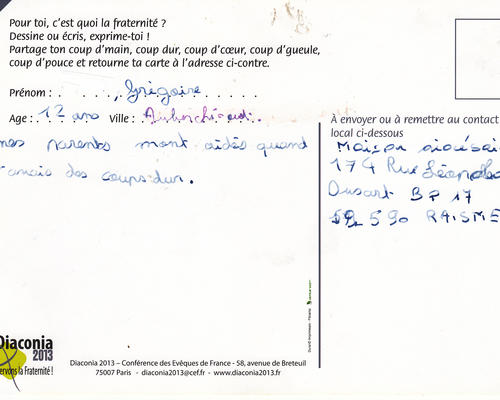 Pour toi, c'est quoi la fraternité ?
Dessine ou écris, exprime-toi !
Partage ton coup d'main, coup dur, coup d'cœur, coup d'gueule,
coup d'pouce et retourne ta carte à l'adresse ci-contre.
Prénom : Grégoire
Age : 12 ans Ville :
mes parents mont aidés quand
j'amais des coups dur.
À envoyer ou à remettre au contact
local ci-dessous
Maison
174 Rue
Dusart BP 17
59 590 RAISME
Diaconia
2013
ervons la Fraternité !
Diaconia 2013 – Conférence des Evêques de France - 58, avenue de Breteuil
75007 Paris - diaconia2013@cef.fr - www.diaconia2013.fr